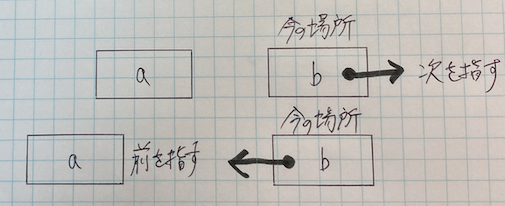 今の場所
a b 次を指す
今の場所
a 前を指す b